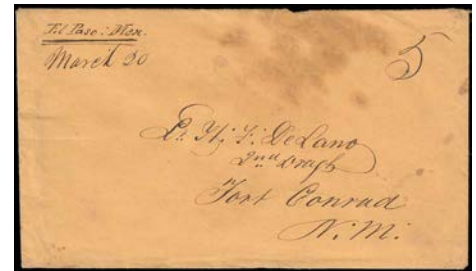 El Paso: Mex.
March 20
5
Lt. H; F: DeLano
2nd Dragh
Fort Conrad
N. M: